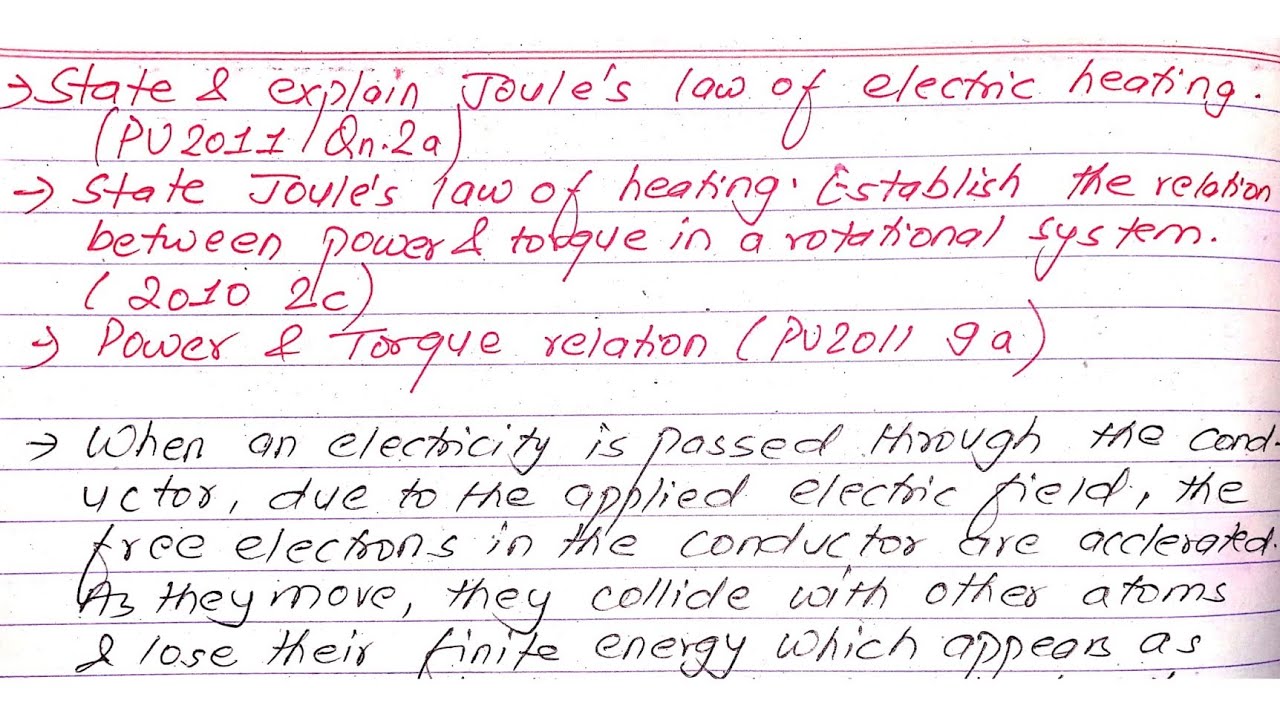 → State & explain Joule's law of electric heating.
(PU2011/Qn.2a)
→ State Joule's law of heating. Establish the relation
between power & torque in a rotational system.
(2010 2c)
→ Power & Torque relation (PU2011 9a)
→ When an electricity is passed through the cond-
uctor, due to the applied electric field, the
free electrons in the conductor are acclerated.
As they move, they collide with other atoms
& lose their finite energy which appears as